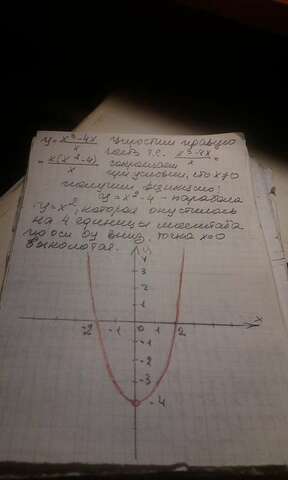 y = x³-4x / x упростим правую
часть т.е. x³-4x / x =
= x(x²-4) / x сокращаем
при условии, что x≠0
получим функцию:
y = x²-4 - парабола
y = x², которая опустилась
на 4 единицы масштаба
по оси Oy вниз, точка x=0
выколотая.
y
3
2
1
-2 -1 0 2 x
-1
-2
-3
-4